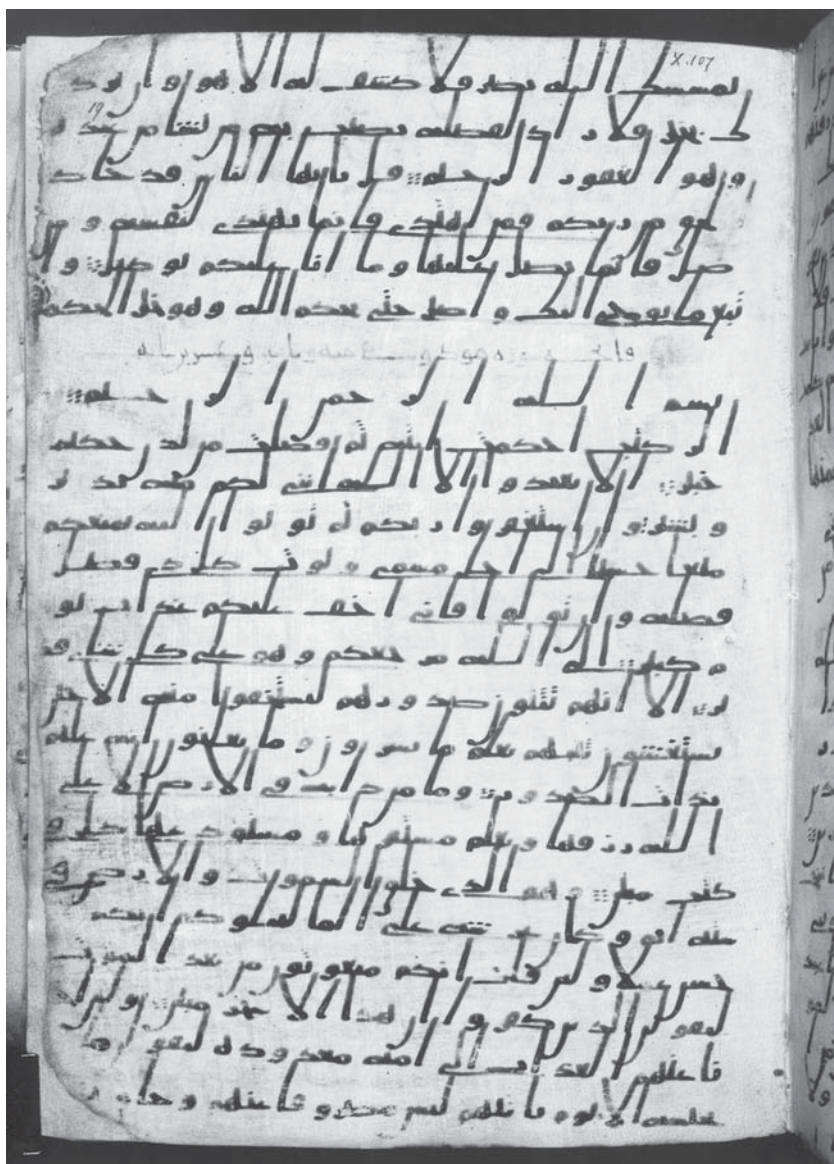 X.107
يمسسك الله بضر فلا كشف له الا هو وان يرد
19
ك بخير فلا راد لفضله يصيب به من يشا من عبده
وهو الغفور الرحيم قل يايها الناس قد جاكم ا
لحق من ربكم فمن اهتدى فانما يهتدى لنفسه ومن
ضل فانما يضل عليها وما انا عليكم بوكيل وا
تبع ما يوحى اليك واصبر حتى يحكم الله وهو خير الحكمين
فاتحة سورة هود مايه وعشرين ايه
بسم الله الرحمن الرحيم
الر كتب احكمت ايته ثم فصلت من لدن حكيم
خبير الا تعبدوا الا الله انني لكم منه نذير
وبشير وان استغفروا ربكم ثم توبوا اليه يمتعكم
متعا حسنا الى اجل مسمى ويوت كل ذي فضل
فضله وان تولوا فاني اخف عليكم عذاب يو
م كبير الى الله مرجعكم وهو على كل شي قد
ير الا انهم يثنون صدورهم ليستخفوا منه الا حين
يستغشون ثيبهم يعلم ما يسرون وما يعلنون انه عليم
بذات الصدور وما من دابة في الارض الا على
الله رزقها ويعلم مستقرها ومستودعها كل في
كتب مبين وهو الذي خلق السموت والارض في
ستة ايم وكان عرشه على الما ليبلوكم ايكم ا
حسن عملا ولئن قلت انكم مبعوثون من بعد الموت
ليقولن الذين كفروا ان هذا الا سحر مبين ولئن ا
خرنا عنهم العذب الى امة معدودة ليقولن ما
يحبسه الا يوم ياتيهم ليس مصروفا عنهم وحاق